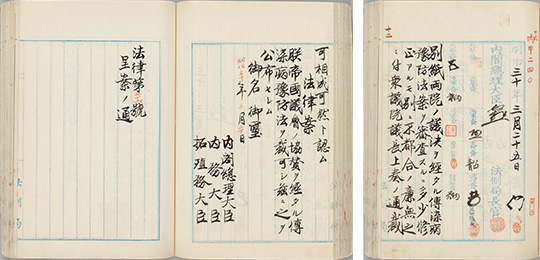 明治三十年三月二十五日
内閣總理大臣
法制局長官
別紙両院ノ議決ヲ経タル傳染病
豫防法案ヲ審査スルニ多少修
正アルモ別ニ不都合ノ廉無之
ニ付衆議院議長上奏ノ通裁
可相成可然ト認ム
法律案
朕帝國議會ノ協賛ヲ経タル傳
染病豫防法ヲ裁可シ茲ニ之ヲ
公布セシム
御名 御璽
年 月 日
内閣總理大臣
内務大臣
拓殖務大臣
法律第 號
呈案ノ通